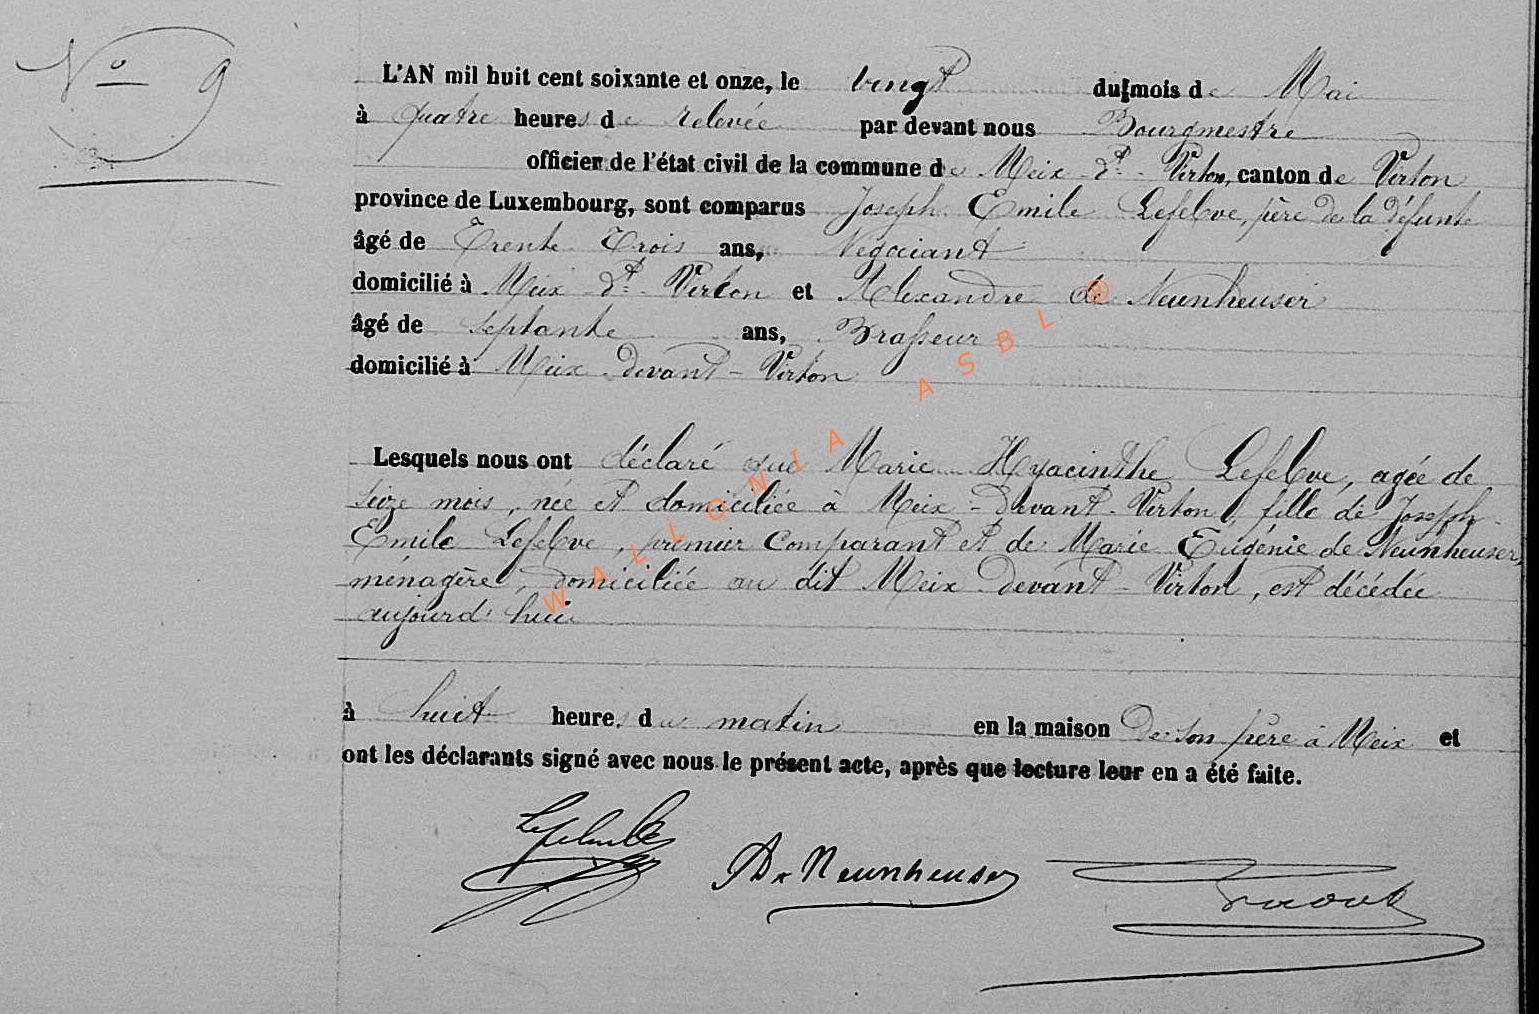 N° 9
L'AN mil huit cent soixante et onze, le vingt du mois de Mai
à quatre heures de relevée par devant nous Bourgmestre
officier de l'état civil de la commune de Meix dt Virton, canton de Virton
province de Luxembourg, sont comparus Joseph Emile Lefebve, père de la défunte
âgé de Trente Trois ans, Négociant
domicilié à Meix dt Virton et Alexandre de Neunheuser
âgé de septante ans, Brasseur
domicilié à Meix devant-Virton
Lesquels nous ont déclaré que Marie Hyacinthe Lefebve, agée de
seize mois, née et domiciliée à Meix-devant-Virton, fille de Joseph
Emile Lefebve, premier comparant et de Marie Eugénie de Neunheuser,
menagère, domiciliée au dit Meix devant-Virton, est décédée
aujourd'hui
à huit heures du matin en la maison de son père à Meix et
ont les déclarants signé avec nous le présent acte, après que lecture leur en a été faite.
Lefebve ADe Neunheuser
WALLONIA ASBL ®